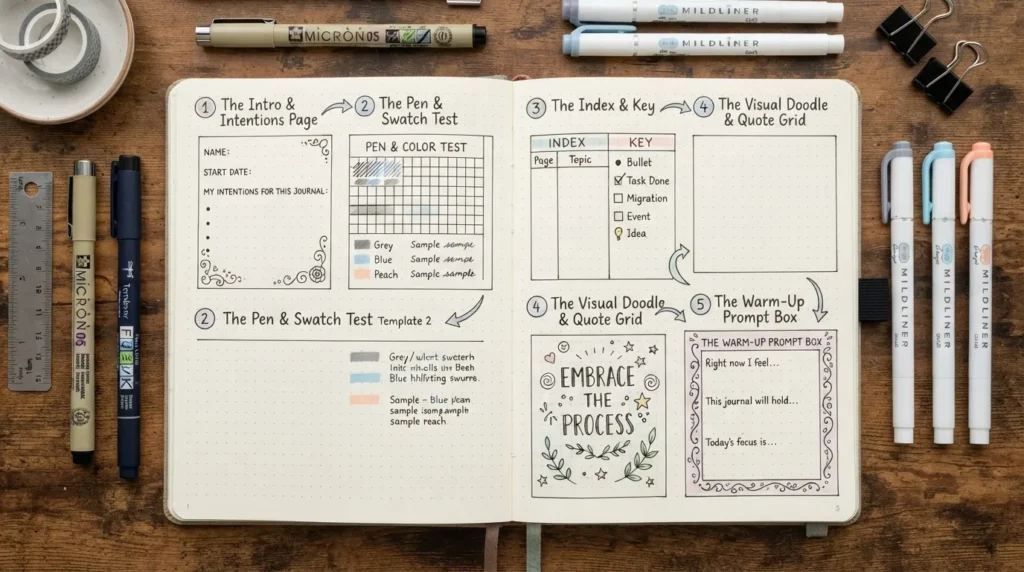 MICRON 05
MILDLINER
MILDLINER
1 The Intro &
Intentions Page
NAME:
START DATE:
MY INTENTIONS FOR THIS JOURNAL:
2 The Pen &
Swatch Test
PEN & COLOR TEST
Grey Sample
Blue Sample
Peach Sample sample
2 The Pen & Swatch Test Template 2
Grey
Blue
Sample - Blue
sample
sample reach
1
3 The Index & Key
INDEX
Page Topic
KEY
Bullet
Task Done
Migration
Event
Idea
4 The Visual Doodle
& Quote Grid
4 The Visual Doodle
& Quote Grid
EMBRACE
THE
PROCESS
5 The Warm-Up
Prompt Box
THE WARM-UP PROMPT BOX
Right now I feel...
This journal will hold...
Today's focus is...
MICRON
MILDLINER
MILDLINER
MILDLINER